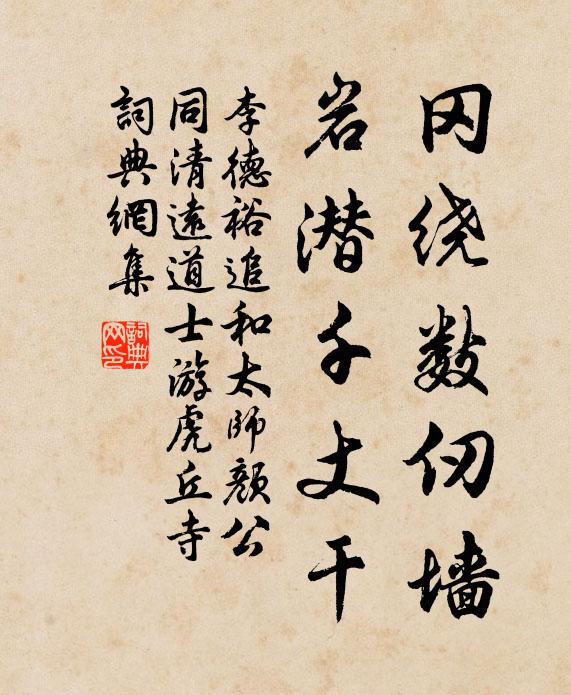 冈绕数仞墙
岩潜千丈干
李德裕追和太师颜公
同清远道士游虎丘寺
词典網集
詞典
网印